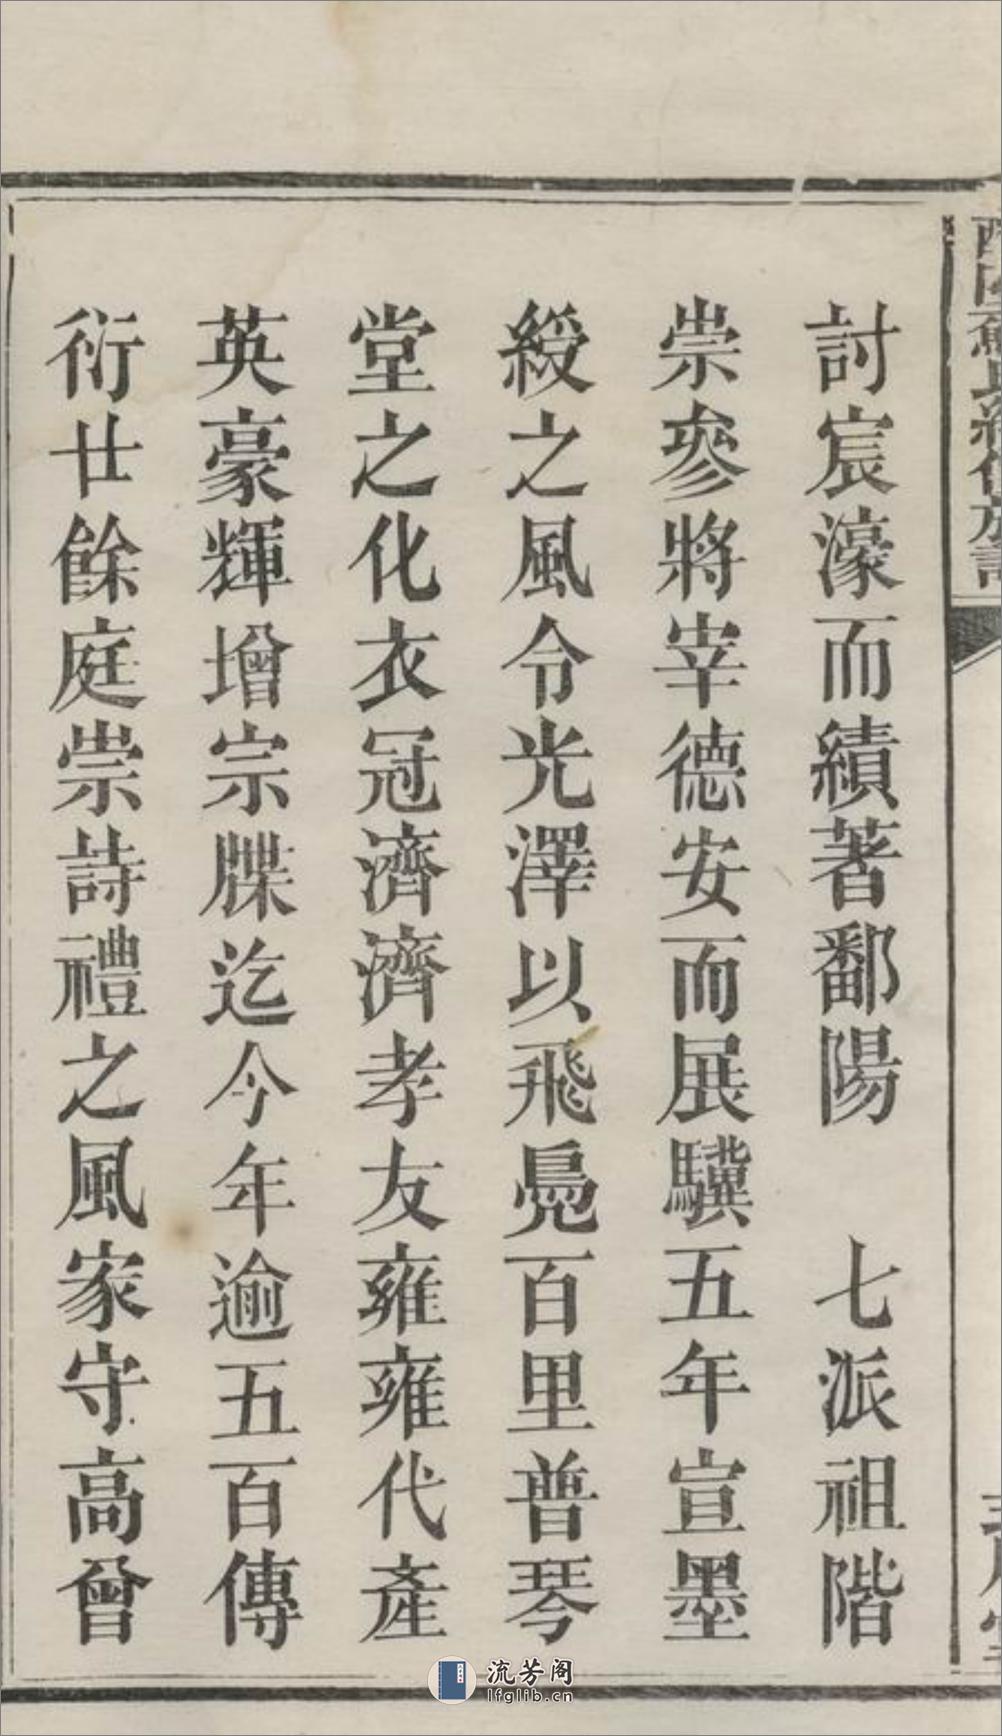 討宸濠而績著鄱陽　七派祖階
崇參將宰德安而展驥五年宣墨
綬之風令光澤以飛鳧百里普琴
堂之化衣冠濟濟孝友雍雍代產
英豪輝增宗牒迄今年逾五百傳
衍廿餘庭崇詩禮之風家守高曾
流芳阁
lfglib.cn